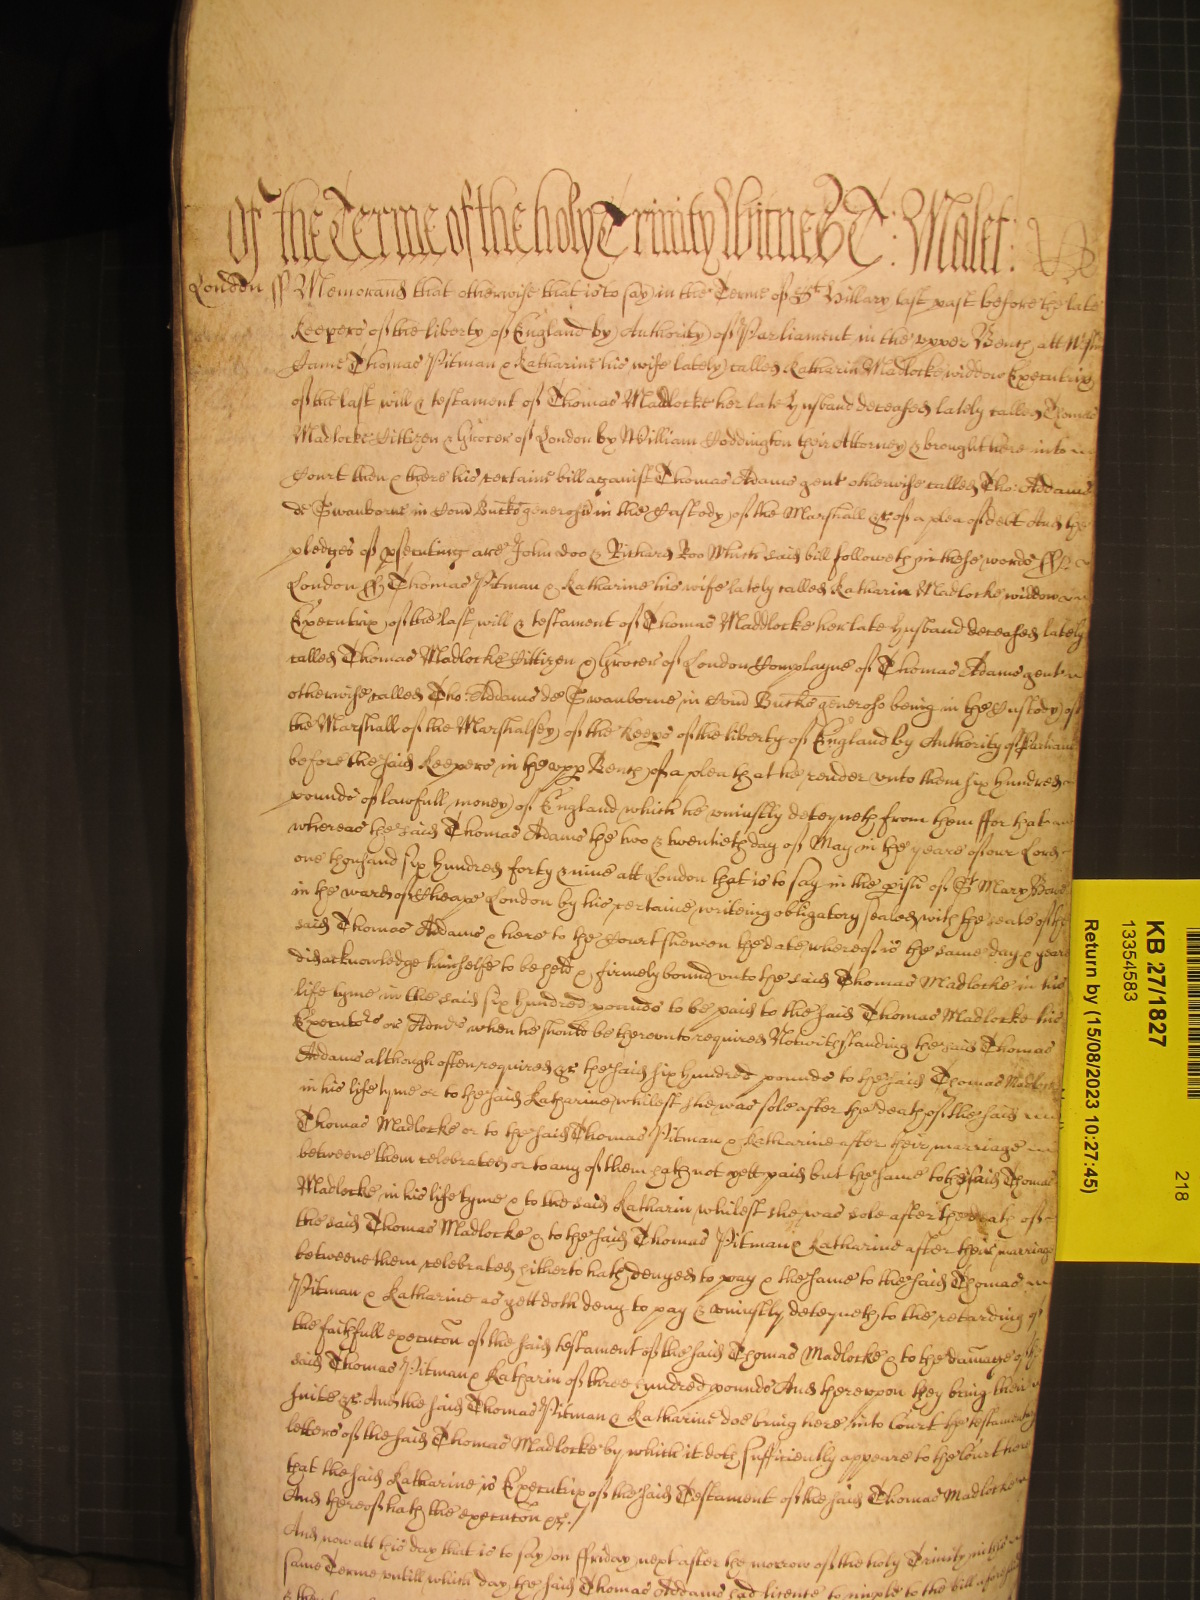 Of the Terme of the holy Trinity Witnes T: Malet:
London ss Memorand that otherwise that is to say in the Terme of St Hillary last past before the late
keepers of the liberty of England by Authority of Parliament in the upper Bench att Westm
Came Thomas Pitman & Katharine his wife lately called Katharin Madlocke widdow Executrix
of the last will & testament of Thomas Maddlocke her late husband deceased lately called Thomas
Madlocke Cittizen & Grocer of London by William Coddington their Attorney & brought here into
Court then & there his certaine bill against Thomas Adams gent otherwise called Tho: Addams
de Swanborne in Com Bucks generoso in the Custody of the Marshall &c of a plea of debt And the
pledges of psecuting are John Doo & Richard Roo Which said bill followeth in these words ss
London ss Thomas Pitman & Katharine his wife lately called Katharin Madlocke widdow
Executrix of the last will & testament of Thomas Maddlocke her late husband deceased lately
called Thomas Madlocke Cittizen & Grocer of London Complayne of Thomas Adams gent
otherwise called Tho: Addams de Swanborne in Com Bucks generoso being in the Custody of
the Marshall of the Marshalsey of the keeps of the liberty of England by Authority of Parliamt
before the said keepers in the upp Bench of a plea that he render unto them six hundred
pounds of lawfull money of England which he uniustly deteyneth from them ffor that
whereas the said Thomas Adams the two & twentieth day of May in the yeare of our Lord
one thousand six hundred forty & nine att London that is to say in the pish of St Mary Bowe
in the ward of Cheape London by his certaine writeing obligatory sealed with the seale of the
said Thomas Addams & here to the Court shewen the date whereof is the same day & yeare
did acknowledge himselfe to be held & firmely bound unto the said Thomas Madlocke in his
life tyme in the said six hundred pounds to be paid to the said Thomas Madlocke his
Executors or Admrs when he should be thereunto required Notwithstanding the said Thomas
Addams although often required &c the said six hundred pounds to the said Thomas Madlocke
in his life tyme or to the said Katharine whilest she was sole after the death of the said
Thomas Madlocke or to the said Thomas Pitman & Katharine after their marriage
betweene them celebrated or to any of them hath not yett paid but the same to the said Thomas
Madlocke in his life tyme & to the said Katharin whilest she was sole after the death of
the said Thomas Madlocke & to the said Thomas Pitman & Katharine after their marriage
betweene them celebrated hitherto hath denyed to pay & the same to the said Thomas
Pitman & Katharine as yett doth deny to pay & uniustly deteyneth to the retarding of
the faithfull execucon of the said testament of the said Thomas Madlocke & to the damage of the
said Thomas Pitman & Katharin of three hundred pounds And thereupon they bring their
suite &c And the said Thomas Pitman & Katharine doe bring here into Court the testamentary
letters of the said Thomas Madlocke by which it doth sufficiently appeare to the Court here
that the said Katharine is Executrix of the said Testament of the said Thomas Madlocke
And thereof hath the execucon &c./
And now att this day that is to say on ffriday next after the morrow of the holy Trinity in this
same Terme untill which day the said Thomas Addams had licence to imple to the bill aforesaid
KB 27/1827
13354583
218
Return by (15/08/2023 10:27:45)